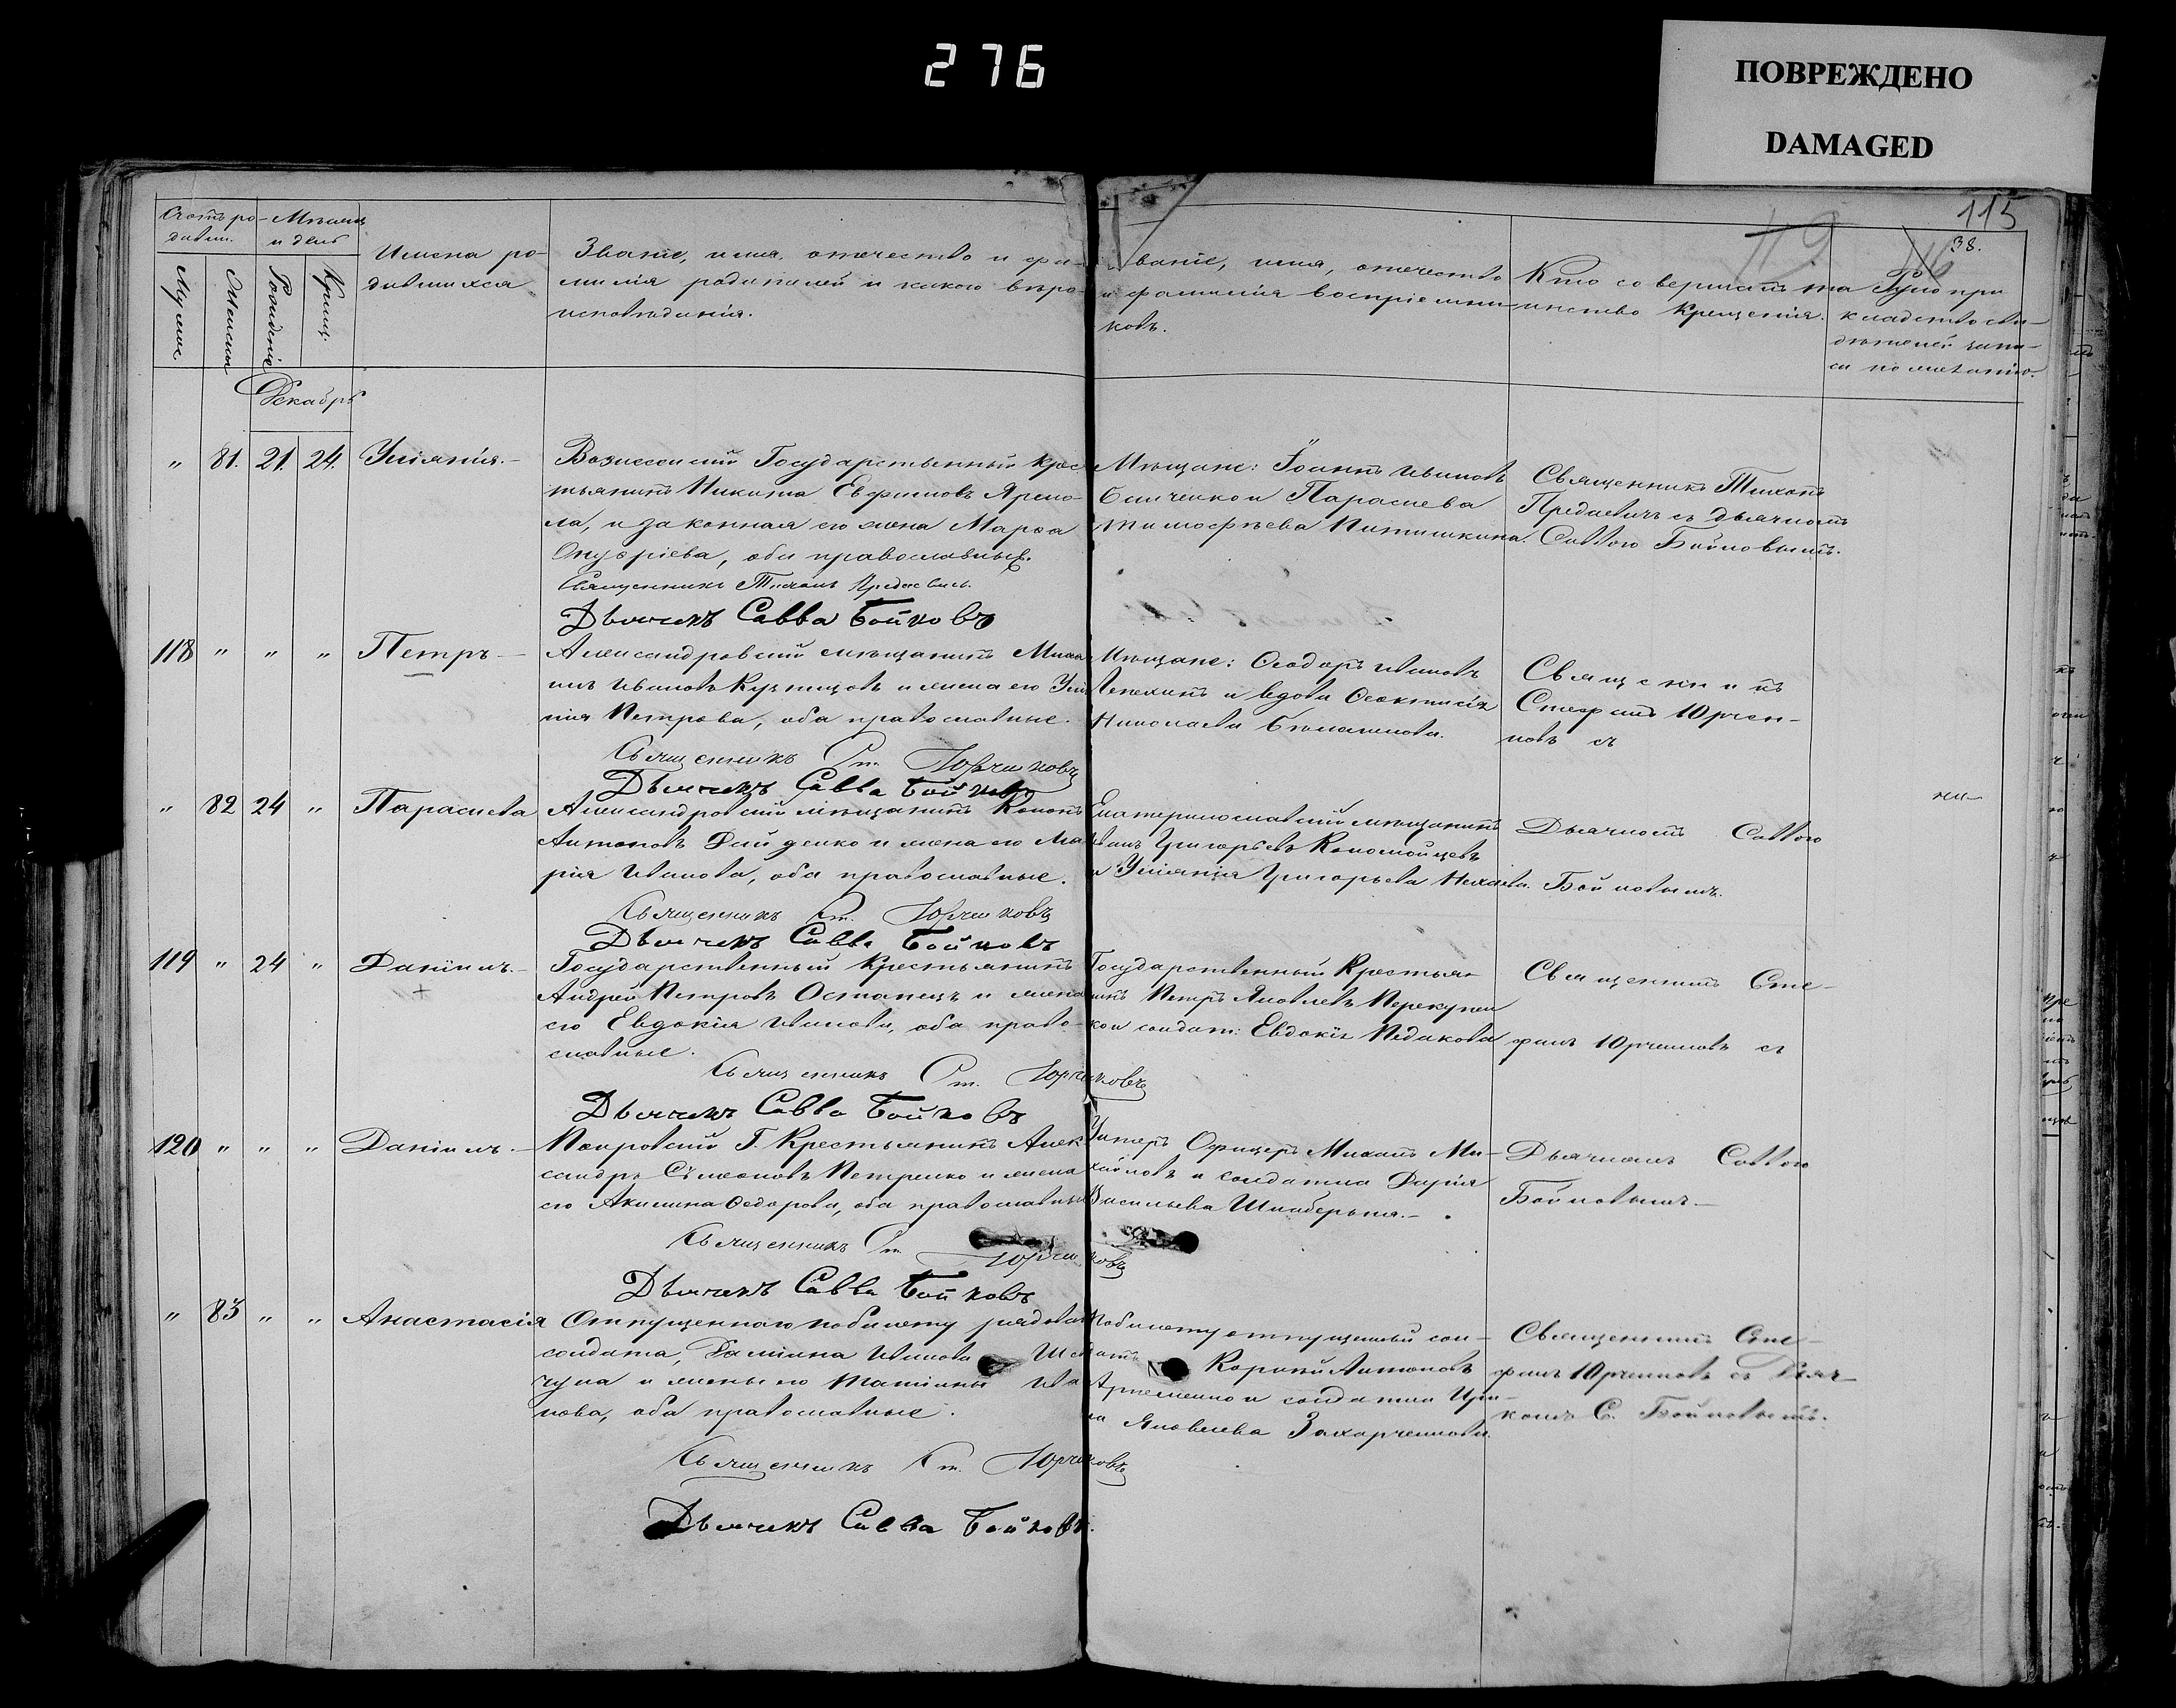 276
ПОВРЕЖДЕНО
DAMAGED
115
38.
119
Счетъ ро-
дивш.
Мѣсяцъ
и день
Мужска
Женска
Рожденія
Крещ.
Имена ро-
дившихся
Званіе, имя, отечество и фа-
милія родителей и какого вѣро-
исповѣданія.
Званіе, имя, отечество
и фамилія воспріемни-
ковъ.
Кто совершалъ та
инство крещенія.
Руко при
кладство сви-
дѣтелей запи-
си по желанію.
Декабрь
" 81. 21. 24. Уліянія.-
Вознесенскій Государственный крес
тьянинъ Никита Евфимовъ Ярмо-
ла, и законная его жена Марѳа
Онуфріева, оба православныя.
Священникъ Тихонъ Предаевичъ.
Дьячекъ Савва Бойковъ
Мѣщане: Іоаннъ Ивановъ
и Параскева
Тимофѣева
Священникъ Тихонъ
Предаевичъ съ дьячкомъ
Саввою Бойковымъ.
118 " " " Петръ -
Александровскій мѣщанинъ Миха
илъ Ивановъ Кузнецовъ и жена его Ули
нія Петрова, оба православные.
Священникъ Ст. Юрченковъ
Дьячекъ Савва Бойковъ
Мѣщане: Ѳеодоръ Ивановъ
Лепехинъ и вдова Ѳеоктисія
Николаева
Священникъ
Стефанъ Юрчен-
ковъ съ
" 82 24 " Параскева
Александровскій мѣщанинъ Кононъ
Антоновъ и жена его Ма
рія Иванова, оба православные.
Священникъ Ст. Юрченковъ
Дьячекъ Савва Бойковъ
Екатеринославскій мѣщанинъ
Иванъ Григорьевъ Коломойцевъ
и Уліянія Григорьева
Дьячкомъ Саввою
Бойковымъ.
119 " 24 " Даніилъ.-
Государственный Крестьянинъ
Андрей Петровъ Остапецъ и жена
его Евдокія Иванова, оба право-
славные.
Священникъ Ст. Юрченковъ
Дьячекъ Савва Бойковъ
Государственный Крестья-
нинъ Петръ Яковлевъ
и солдат: Евдокія Педакова
Священникъ Сте-
фанъ Юрченковъ съ
120 " " " Даніилъ.-
Покровскій Г. Крестьянинъ Алек
сандръ Сѵмеоновъ Петренко и жена
его Акилина Ѳедорова, оба православные
Священникъ Ст. Юрченковъ
Дьячекъ Савва Бойковъ
Унтеръ Офицеръ Михаилъ Ми-
хайловъ и солдатка Дарія
Васильева
Дьячкомъ Саввою
Бойковымъ.-
" 83 " " Анастасія
Отпущеннаго по билету рядова
солдата, Даміана Иванова
и жены его Татіаны Ива
нова, оба православные.
Священникъ Ст. Юрченковъ
Дьячекъ Савва Бойковъ.
По билету отпущенный сол-
датъ Корнѣй Антоновъ
Артеменко и солдатка Ири-
на Яковлева Захарченкова.
Священникъ Сте-
фанъ Юрченковъ съ Дьяч-
комъ С. Бойковымъ.